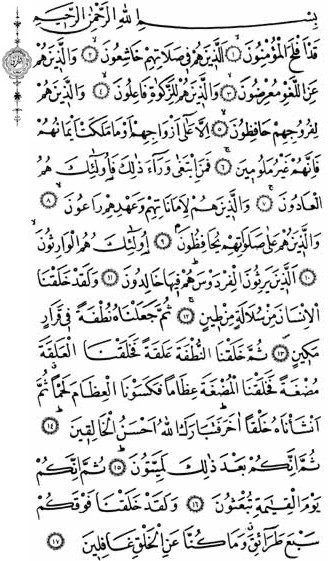 بِسْمِ اللهِ الرَّحْمٰنِ الرَّحِيمِ
قَدْ اَفْلَحَ الْمُؤْمِنُونَۙ ﴿١﴾ اَلَّذِينَ هُمْ فِى صَلَاتِهِمْ خَاشِعُونَۙ ﴿٢﴾ وَالَّذِينَ هُمْ
عَنِ اللَّغْوِ مُعْرِضُونَۙ ﴿٣﴾ وَالَّذِينَ هُمْ لِلزَّكٰوةِ فَاعِلُونَۙ ﴿٤﴾ وَالَّذِينَ هُمْ
لِفُرُوجِهِمْ حَافِظُونَۙ ﴿٥﴾ اِلَّا عَلٰٓى اَزْوَاجِهِمْ اَوْ مَا مَلَكَتْ اَيْمَانُهُمْ
فَاِنَّهُمْ غَيْرُ مَلُومِينَۚ ﴿٦﴾ فَمَنِ ابْتَغٰى وَرَٓاءَ ذٰلِكَ فَاُو۬لٰٓئِكَ هُمُ
الْعَادُونَۚ ﴿٧﴾ وَالَّذِينَ هُمْ لِاَمَانَاتِهِمْ وَعَهْدِهِمْ رَاعُونَۙ ﴿٨﴾
وَالَّذِينَ هُمْ عَلٰى صَلَوَاتِهِمْ يُحَافِظُونَۘ ﴿٩﴾ اُو۬لٰٓئِكَ هُمُ الْوَارِثُونَۙ
﴿١٠﴾ اَلَّذِينَ يَرِثُونَ الْفِرْدَوْسَ هُمْ فِيهَا خَالِدُونَ ﴿١١﴾ وَلَقَدْ خَلَقْنَا
الْاِنْسَانَ مِنْ سُلَالَةٍ مِنْ طِينٍۚ ﴿١٢﴾ ثُمَّ جَعَلْنَاهُ نُطْفَةً فِى قَرَارٍ
مَكِينٍ ﴿١٣﴾ ثُمَّ خَلَقْنَا النُّطْفَةَ عَلَقَةً فَخَلَقْنَا الْعَلَقَةَ
مُضْغَةً فَخَلَقْنَا الْمُضْغَةَ عِظَامًا فَكَسَوْنَا الْعِظَامَ لَحْمًا ثُمَّ
اَنْشَاْنَاهُ خَلْقًا اٰخَرَ فَتَبَارَكَ اللهُ اَحْسَنُ الْخَالِقِينَ ﴿١٤﴾
ثُمَّ اِنَّكُمْ بَعْدَ ذٰلِكَ لَمَيِّتُونَ ﴿١٥﴾ ثُمَّ اِنَّكُمْ
يَوْمَ الْقِيٰمَةِ تُبْعَثُونَ ﴿١٦﴾ وَلَقَدْ خَلَقْنَا فَوْقَكُمْ
سَبْعَ طَرَٓائِقَ وَمَا كُنَّا عَنِ الْخَلْقِ غَافِلِينَ ﴿١٧﴾